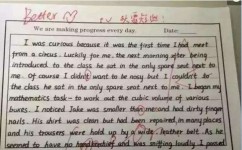 Better
We are making progress every day. Date:
I was curious because it was the first time I had meet
from a circus. Luckily for me, the next morning after being
introduced to the class he sat in the only spare seat next to
me. Of course I didn't want to be nosy but I couldn't to
the class he sat in the only spare seat next to me. I began my
mathematics task- to work out the cubic volume of various
buxes. I noticed Jake was smaller than me and had dirty finger
nails. His shirt was clean but had been repaired in many places
and his trousers were hold up by a wide leather belt. As he
seemed to have no handkerchief and was sniffing loudly I passed